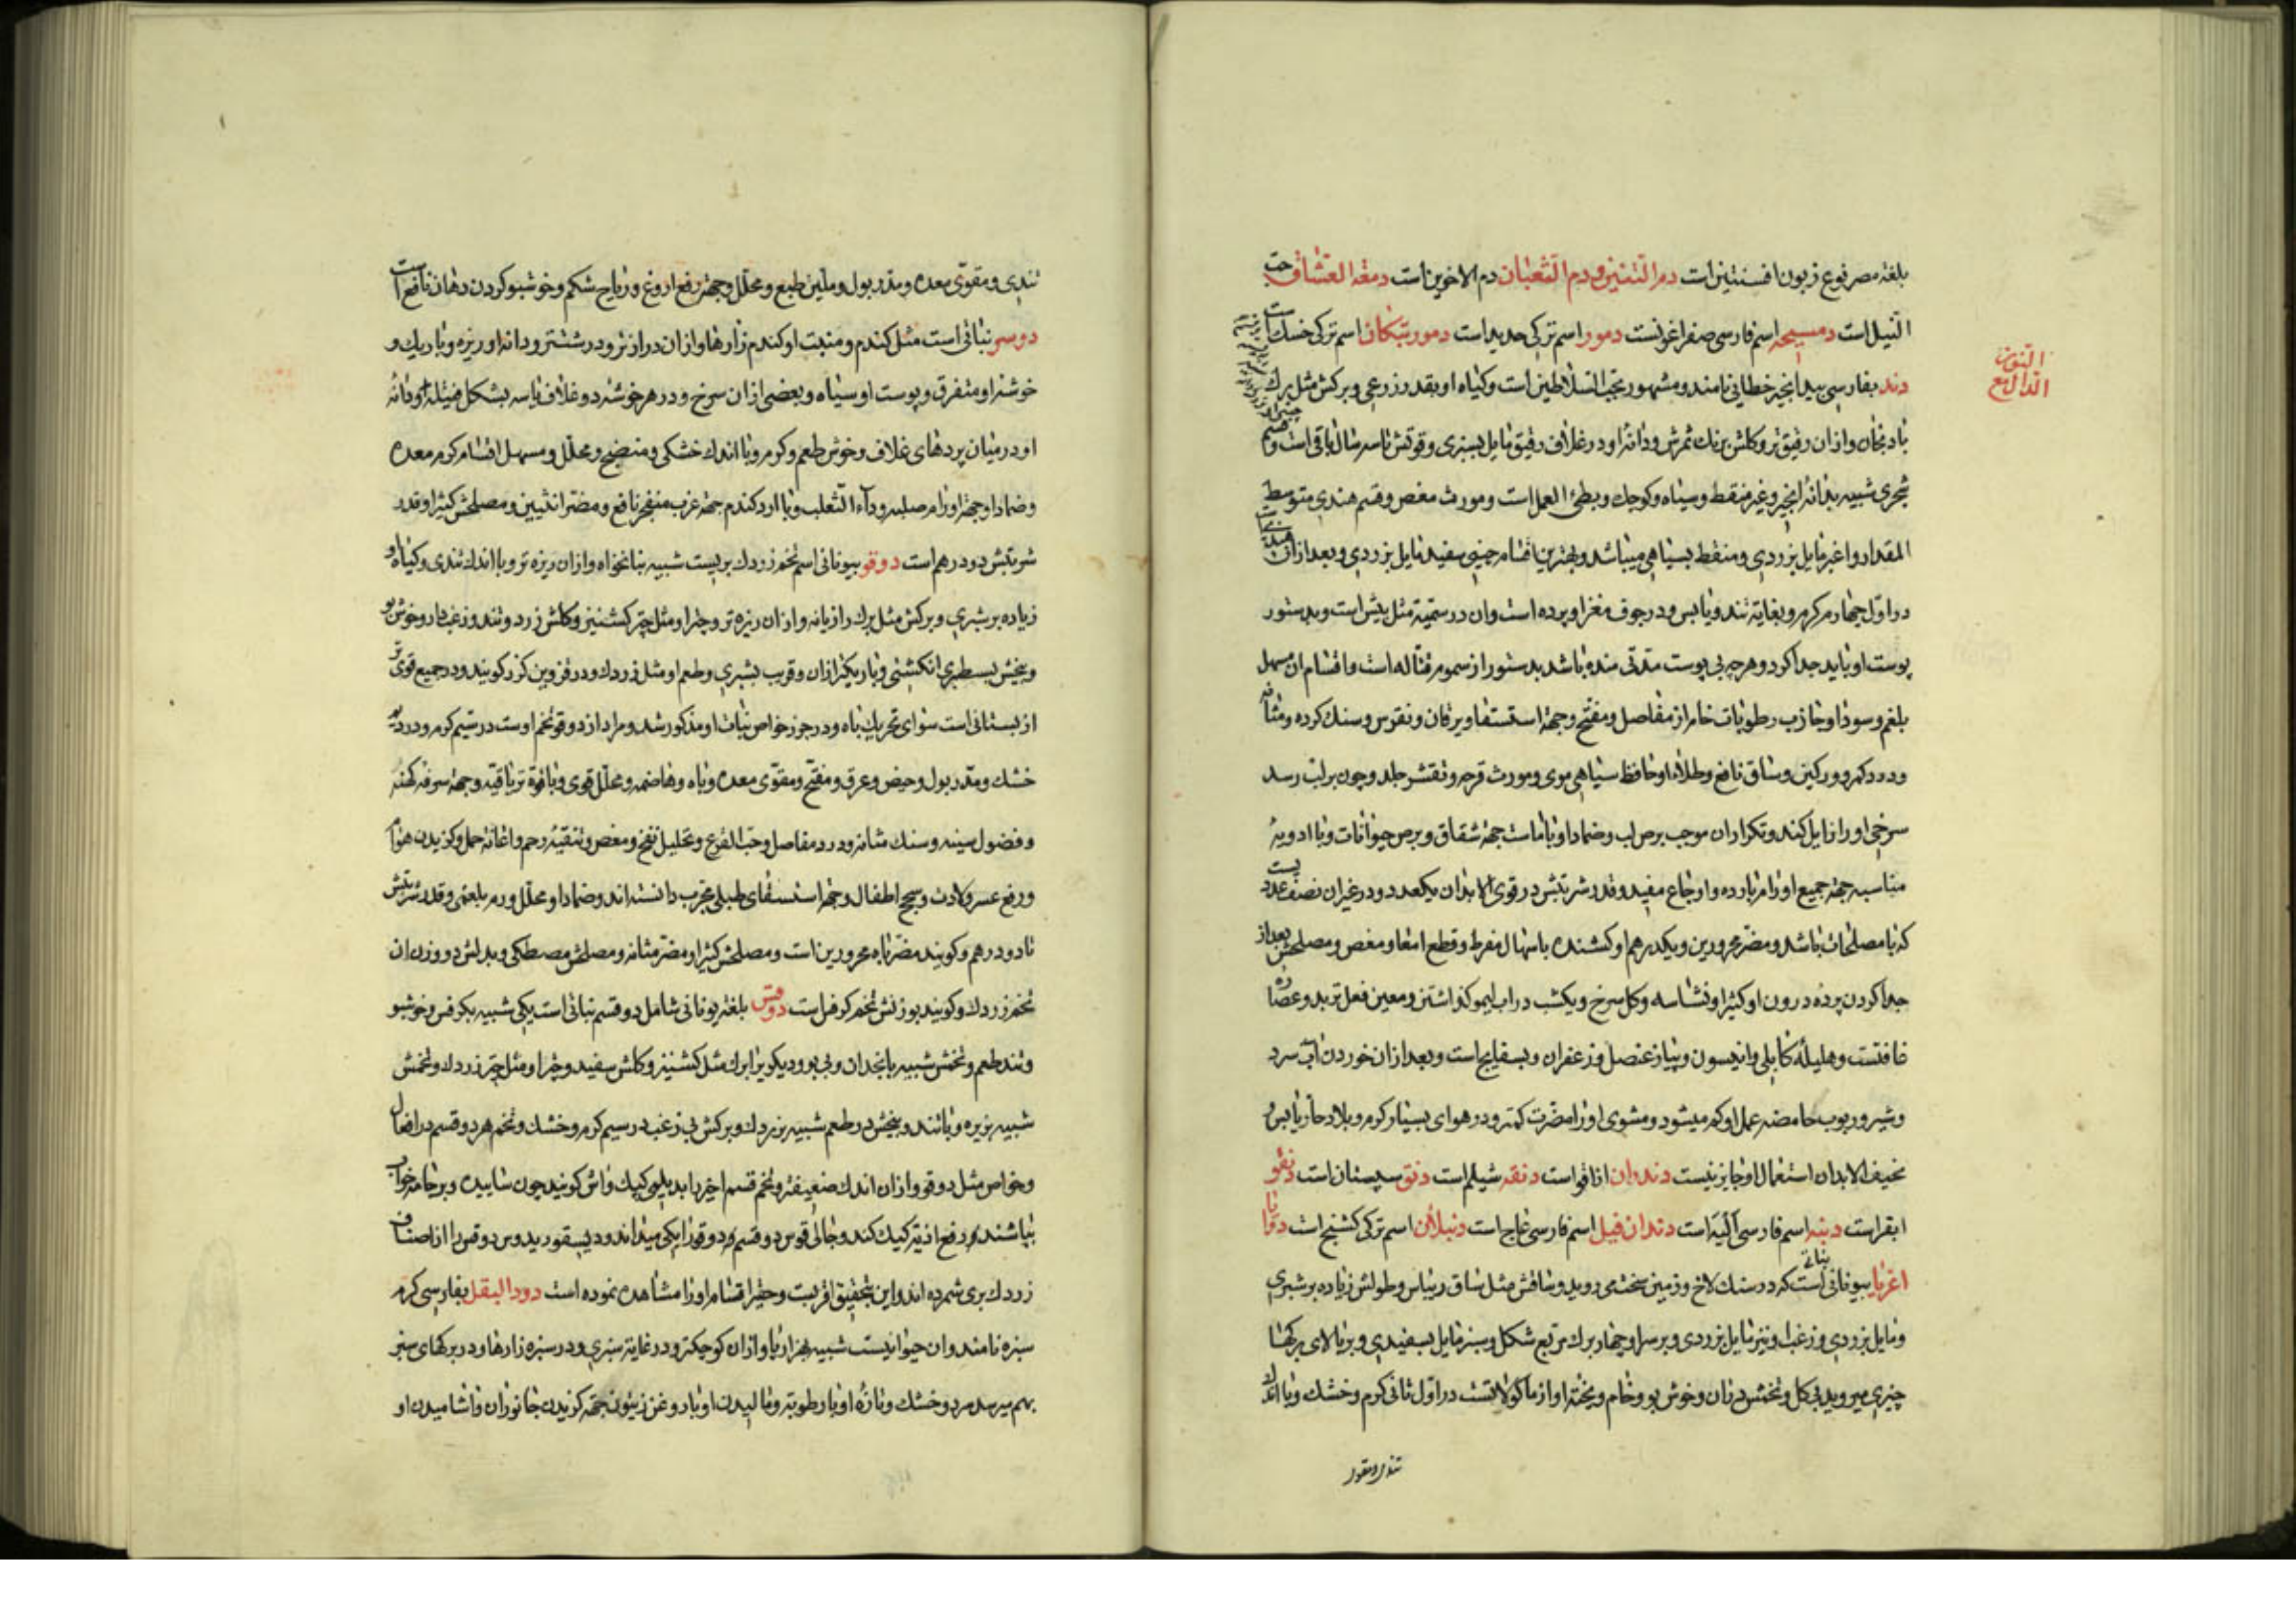 بلغة مصر نوع زبون افسنتین است دم التنین و دم الثعبان دم الاخوین است دمعة العشاق حب
النیل است دمسیحه اسم فارسی صفراغونست دمور اسم ترکی حدید است دمور تیکان اسم ترکی خسک است
النون
مع الدال
دند بفارسی بیدانجیر خطائی نامند و مشهور بحب السلاطین است و کیاه او بقدر زرعی و برکش مثل برك
بادنجان و ازان رقیق تر و کلش برنك ثمرش و دانه او در غلاف رقیق مایل بسبزی و قوتش تا سه سال باقی است و قسم
شجری شبیه بدانه انجیر و غیر منقط و سیاه و کوچك و بطئ العمل است و مورث مغص و قسم هندی متوسط
المقدار و اغبر مایل بزردی و منقط بسیاهی میباشد و بهترین اقسام چینی سفید مایل بزردی و بعد ازان هندی
در اول چهارم کرم و بغایة تند و یابس و در جوف مغز او پرده است و ان در سمیة مثل بیش است و بدستور
پوست او باید جدا کرد و هرچه بی پوست مدتی مانده باشد بدستور از سموم قتاله است و اقسام ان مسهل
بلغم و سودا و جاذب رطوبات خام از مفاصل و مفتح و جهة استسقا و یرقان و نقرس و سنك کرده و مثانه
و درد کمر و ورکین و ساق نافع و طلاء او حافظ سیاهی موی و مورث قرحه و تقشر جلد و چون بر لب رسد
سرخی او را زایل کند و تکرار ان موجب برص لب و ضماد او با ماست جهة شقاق و برص حیوانات و با ادویهٔ
مناسبه جهة جمیع اورام بارده و اوجاع مفید و قدر شربتش در قوی الابدان یکعدد و در غیر ان نصف عدد یست
که با مصلحات باشد و مضر محرورین و یکدرهم او کشنده باسهال مفرط و قطع امعا و مغص و مصلحش بعد از
جدا کردن پرده درون او کثیرا و نشاسه و کل سرخ و یکشب در اب لیمو کذاشتن و معین فعل تربد و عصارهٔ
غافتست و هلیلهٔ کابلی و انیسون و پیاز عنصل و زعفران و بسفایج است و بعد از ان خوردن اب سرد
و شیر و ربوب حامضه عمل او کم میشود و مشوی او را مضرت کمتر و در هوای بسیار کرم و بلاد حار یابس و
نحیف الابدان استعمال او جایز نیست دندوان اذاقو است دنقه شیلم است دنق سپستان است دنقو
ابقر است دنبه اسم فارسی الیه است دندان فیل اسم فارسی عاج است دنبلان اسم ترکی کشنج است دوایا
اغریا بیونانی نباتی است که در سنك لاخ و زمین سخت می روید و ساقش مثل ساق ریباس و طولش زیاده بر شبری
و مایل بزردی و زغب او نیز مایل بزردی و بر سر او چهار برك مربع شکل و سبز مایل بسفیدی و بر بالای برکها
چیزی میروید بی کل و تخمش در ان و خوش بو و خام و پخته او از ماکولاتست در اول ثانی کرم و خشك و با اندك
تندی و مقوی
تندی و مقوی معده و مدر بول و ملین طبع و محلل و جهة رفع اروغ و ریاح شکم و خوشبو کردن دهان نافع است
دوسر نباتی است مثل کندم و منبت او کندم زارها و ازان درازتر و درشتتر و دانه او ریزه و باریك و
خوشه او متفرق و پوست او سیاه و بعضی ازان سرخ و در هر خوشه دو غلاف یا سه بشکل فتیله و دانهٔ
او در میان پردهای غلاف و خوش طعم و کرم و با اندك خشکی و منضج و محلل و مسهل اقسام کرم معده
و ضماد او جهة اورام صلبه و داء الثعلب و با ارد کندم جهة غرب منفجر نافع و مضر انثیین و مصلحش کثیرا و قدر
شربتش دو درهم است دوقو بیونانی اسم تخم زردك بریست شبیه بنانخواه و ازان ریزه تر و با اندك تندی و کیاه او
زیاده بر شبری و برکش مثل برك رازیانه و ازان ریزه تر و چتر او مثل چتر کشنیز و کلش زرد و تند و زغب دار و خوش بو
و بیخش بسطبری انکشتی و باریکتر ازان و قریب بشبری و طعم او مثل زردك و در قزوین کزر کویند و در جمیع قوی تر
از بستانی است سوای تحریك باه و در جزر خواص نبات او مذکور شد و مراد از دوقو تخم اوست در سیم کرم و در دویم
خشك و مدر بول و حیض و عرق و مفتح و مقوی معده و باه و هاضمه و محلل قوی و با قوة تریاقیه و جهة سرفه کهنه
و فضول سینه و سنك مثانه و درد مفاصل و حب القرع و تحلیل نفخ و مغص و تنقیهٔ رحم و اعانة حمل و کزیدن هوام
و رفع عسر ولادت و سحج اطفال و جهة استسقای طبلی مجرب دانسته اند و ضماد او محلل ورم بلغمی و قدر شربتش
تا دو درهم و کویند مضر باه محرورین است و مصلحش کثیرا و مضر مثانه و مصلحش مصطکی و بدلش دو وزن ان
تخم زردك و کویند بوزنش تخم کرفس است دوقس بلغة یونانی شامل دو قسم نباتی است یکی شبیه بکرفس و خوشبو
و تند طعم و تخمش شبیه بانجدان و بی بو و دیکری را برك مثل کشنیز و کلش سفید و چتر او مثل چتر زردك و تخمش
شبیه بزیره و با تند و بیخش در طعم شبیه بزردك و برکش بی زغب در سیم کرم و خشك و تخم هر دو قسم در افعال
و خواص مثل دوقو و ازان اندك ضعیفتر و تخم قسم اخیر را بدیلمی کیك واش کویند چون سابیده و بر جامه خواب
بپاشند رفع اذیة کیك کند و جالینوس دو قسم و دوقو را یکی میداند و دیسقوریدوس دوقس را از اصناف
زردك بری شمرده اند و این بتحقیق اقربست و حقیر اقسام او را مشاهده نموده است دود البقل بفارسی کرم
سبزه نامند و ان حیوانیست شبیه بهزارپا و ازان کوچکتر و در غایة سبزی و در سبزه زارها و در برکهای سبز
بهم میرسد سرد و خشك و تازهٔ او با رطوبة و مالیدن او با روغن زیتون جهة کزیدن جانوران و اشامیدن او